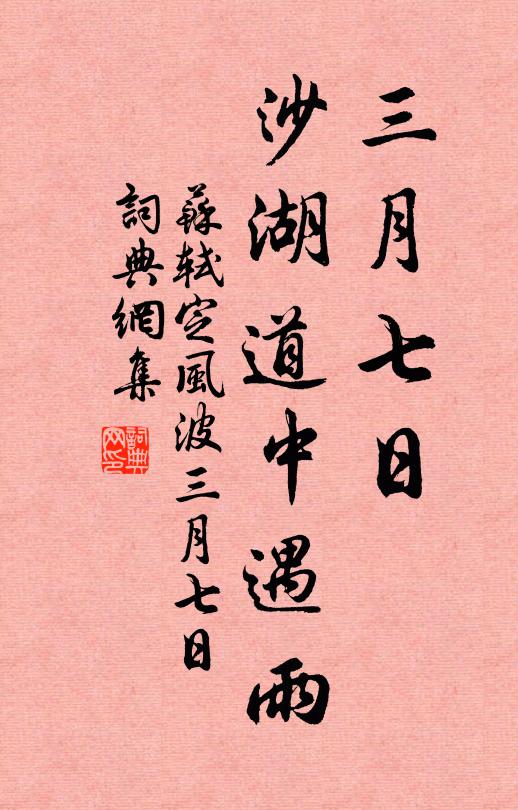 三月七日
沙湖道中遇雨
蘇軾定風波三月七日
詞典網集
詞典网印